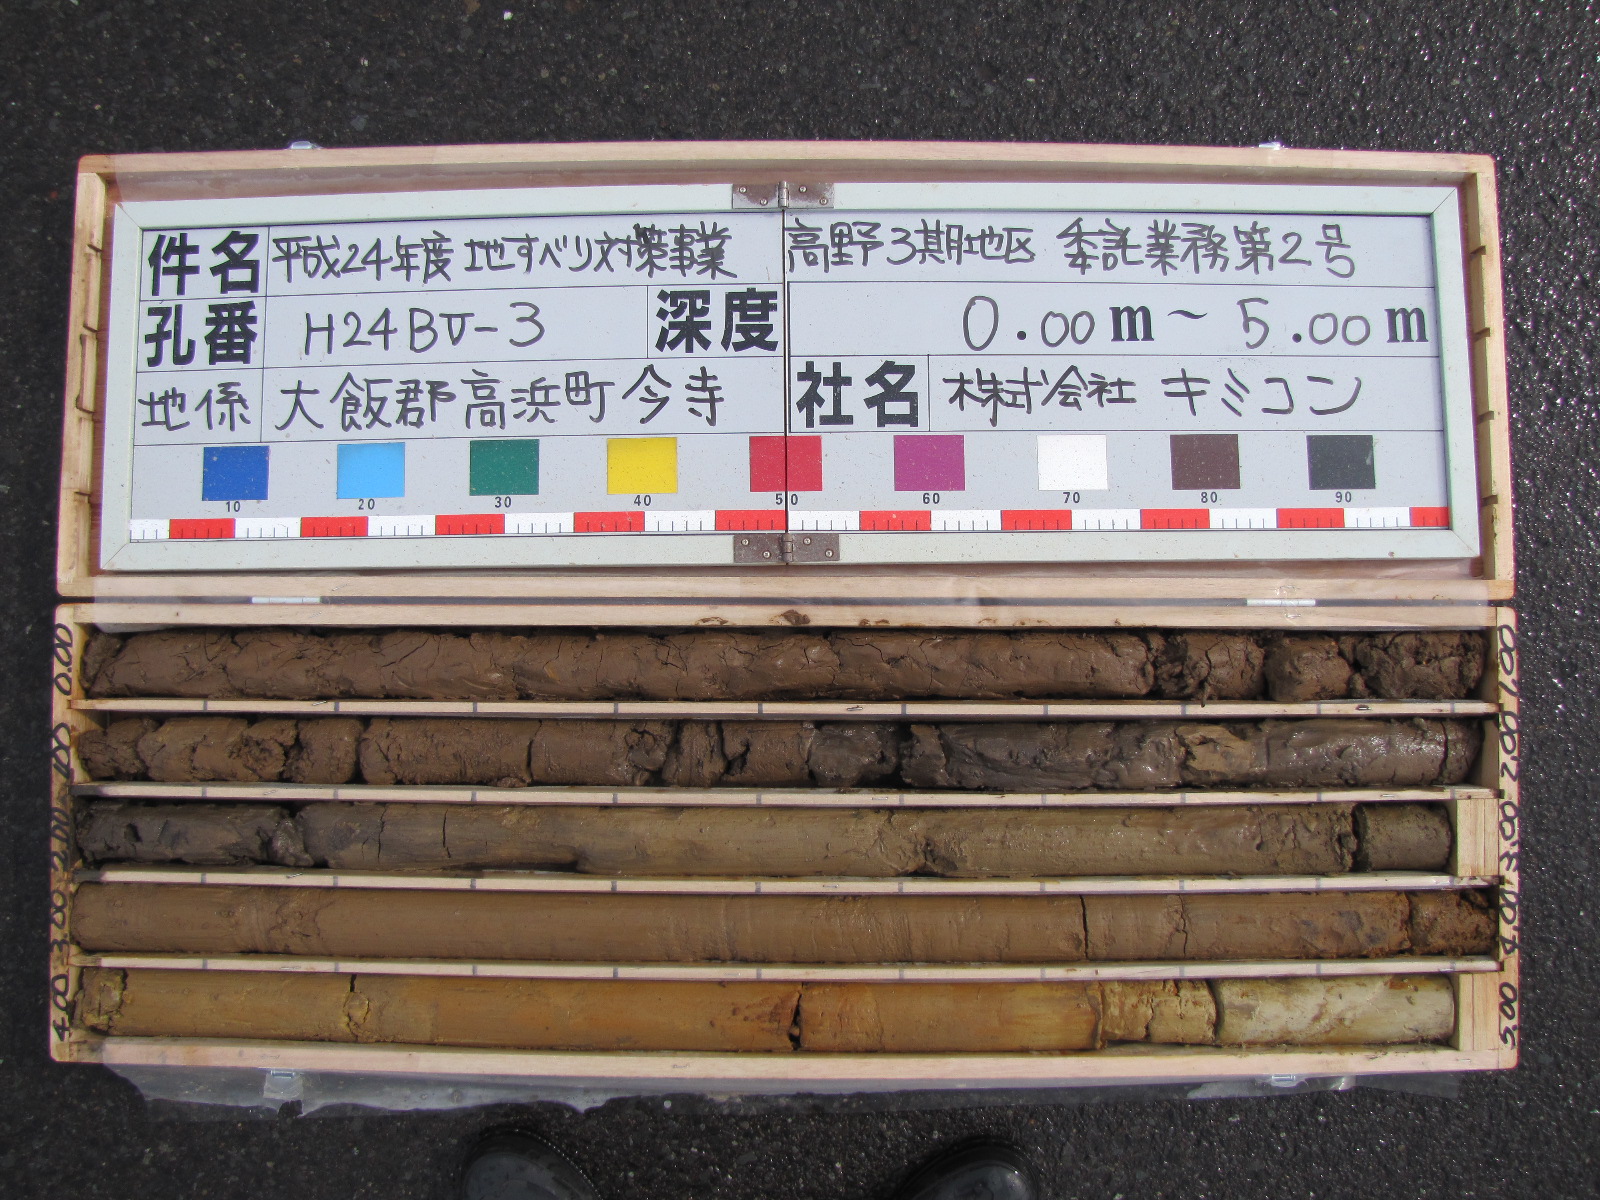 件名 平成24年度 地すべり対策事業 高野3期地区 委託業務第2号
孔番 H24BV-3 深度 0.00m～5.00m
地係 大飯郡高浜町今寺 社名 株式会社 キミコン
10 20 30 40 50 60 70 80 90
0.00 1.00
1.00 2.00
2.00 3.00
3.00 4.00
4.00 5.00